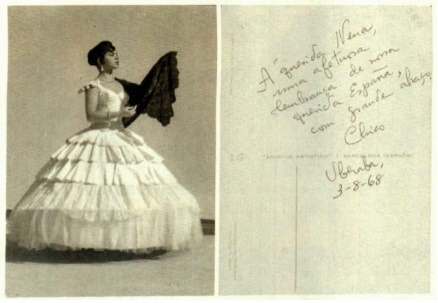 À querida Nena,
uma afetuosa
lembrança de nossa
querida España,
com grande abraço,
Chico
Uberaba,
3-8-68